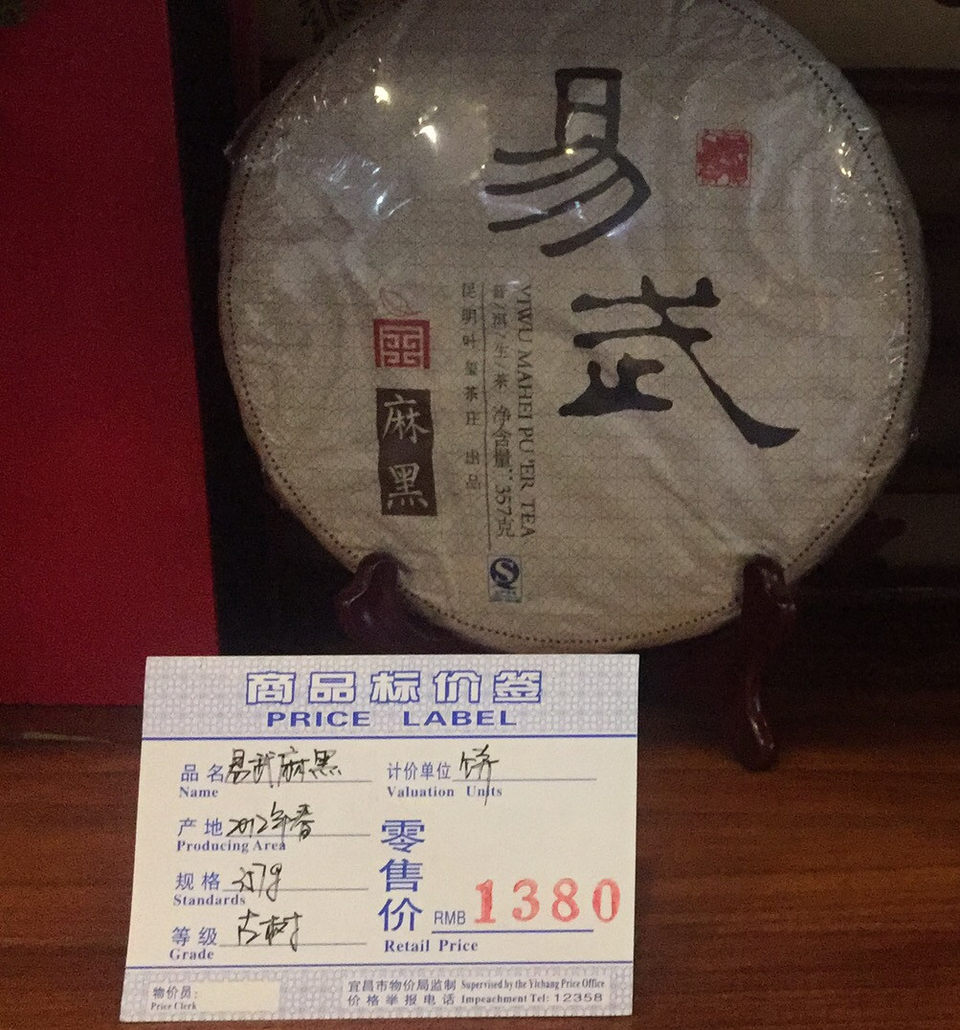 易武
YIWU MAHEI PU'ER TEA
普/洱/生/茶 净含量:357克
昆明叶玺茶庄 出品
麻黑
商品标价签
PRICE LABEL
品名 易武麻黑
Name
计价单位 饼
Valuation Units
产地 2012年春
Producing Area
规格 357g
Standards
等级 古树
Grade
零售价 RMB 1380
Retail Price
物价员:
Price Clerk
宜昌市物价局监制 Supervised by the Yichang Price Office
价格举报电话 Impeachment Tel: 12358